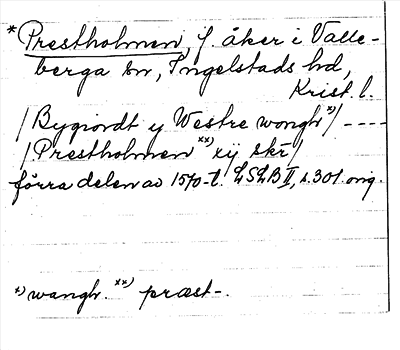 *Prestholmen, f. åker i Valle-
berga sn, Ingelstads hd,
Krist. l.
/Bygiordt y Westre wongh x)/ ----
/Prestholmen xx) xij skr/
förra delen av 1570-t. LSLB II, s. 301. orig.
x) wangh. xx) præst-.